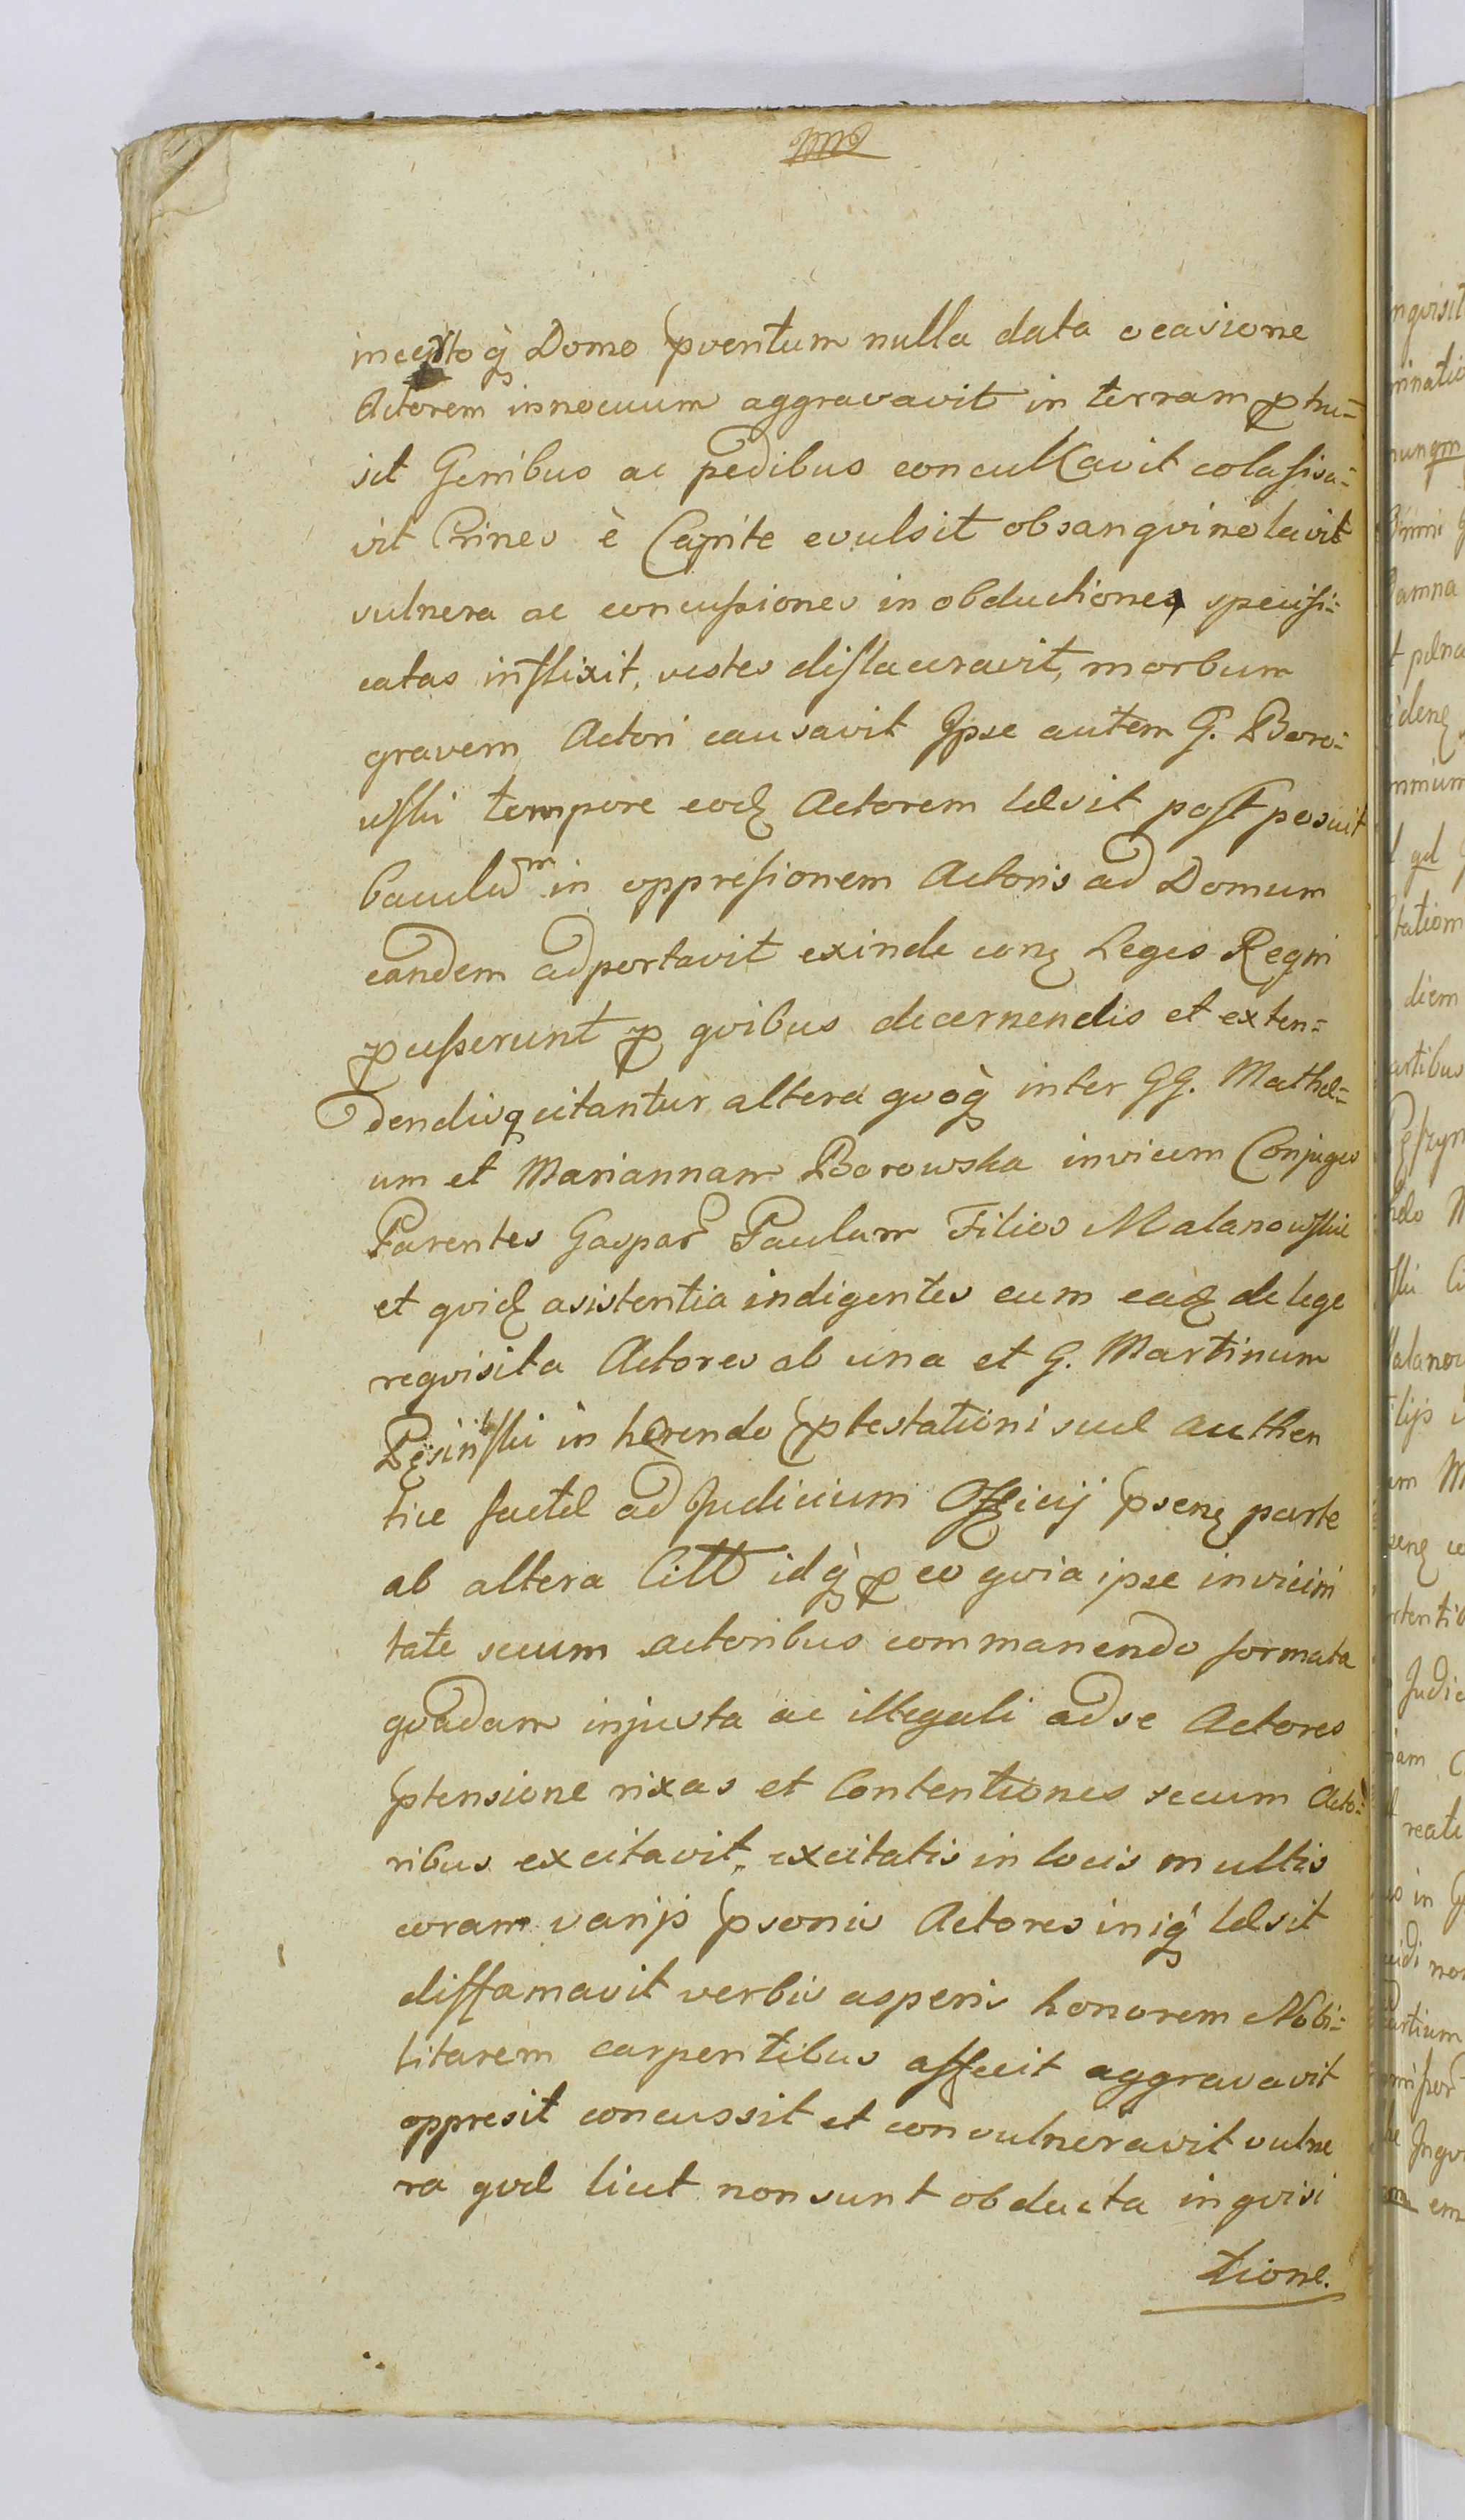 Actorem innocuum aggravavit in terram ptru=
sit Genibus ac pedibus conculcavit colafisa=
vit Crines è Capite evulsit obsangvinolavit
vulnera ac concussiones in obductione specifi=
catas inflixit, vestes dislaceravit, morbum
gravem Actori causavit Ipse autem G. Boro=
wski tempore eodq Actorem læsit post posuit
baculum in oppresionem Actoris ad Domum
eandem adportavit exinde cong Leges Regni
p cusserunt p qvibus decernendis et exten=
dendisq citantur altera qvoq inter GG. Mathæ=
um et Mariannam Borowska invicem Conjuges
Parentes Gaspar Paulum Filios Malanowskie
et qvidq asistentia indigentes cum eadq de lege
reqvisita Actores ab una et G. Martinum
in hærendo ptestationi suæ authen
tice factæ ad Judicium Officij pseng parte
ab altera Citt idq p eo qvia ipse invicini
tate secum actoribus commanendo formata
qvadam injusta ac illegali ad se Actores
ptensione rixas et Contentiones secum Acto=
ribus excitavit, excitatis in locis multis
coram varijs psonis Actores iniq læsit
diffamavit verbis asperis honorem Nobi=
litarem carpentibus affecit aggravavit
oppresit concussit et convulneravit vulne
ra qvæ licet non sunt obducta inqvisi
tione.